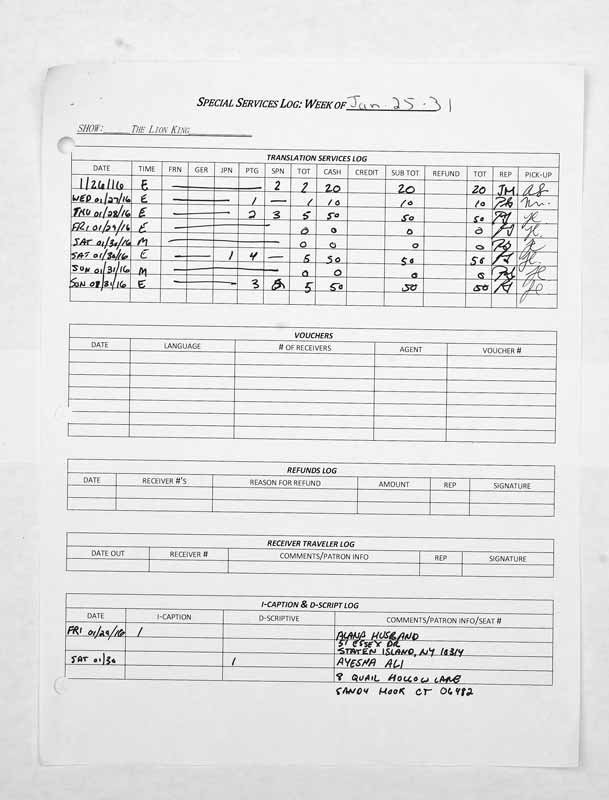 SPECIAL SERVICES LOG: WEEK OF Jan. 25-31
SHOW: THE LION KING
TRANSLATION SERVICES LOG
DATE TIME FRN GER JPN PTG SPN TOT CASH CREDIT SUB TOT REFUND TOT REP PICK-UP
1/26/16 E 2 2 20 20 20 JM
WED 01/27/16 E 1 — 1 10 10 10
THU 01/28/16 E 2 3 5 50 50 50
FRI 01/29/16 E 0 0 0 0
SAT 01/30/16 M 0 0 0 0
SAT 01/30/16 E 1 4 — 5 50 50 50
SUN 01/31/16 M 0 0 0 0
SUN 01/31/16 E 3 5 50 50 50
VOUCHERS
DATE LANGUAGE # OF RECEIVERS AGENT VOUCHER #
REFUNDS LOG
DATE RECEIVER #'S REASON FOR REFUND AMOUNT REP SIGNATURE
RECEIVER TRAVELER LOG
DATE OUT RECEIVER # COMMENTS/PATRON INFO REP SIGNATURE
I-CAPTION & D-SCRIPT LOG
DATE I-CAPTION D-SCRIPTIVE COMMENTS/PATRON INFO/SEAT #
FRI 01/29/16 1 ALANA HUSBAND
51 ESSEX DR
STATEN ISLAND, NY 10314
SAT 01/30 1 AYESHA ALI
8 QUAIL HOLLOW LANE
SANDY HOOK CT 06482